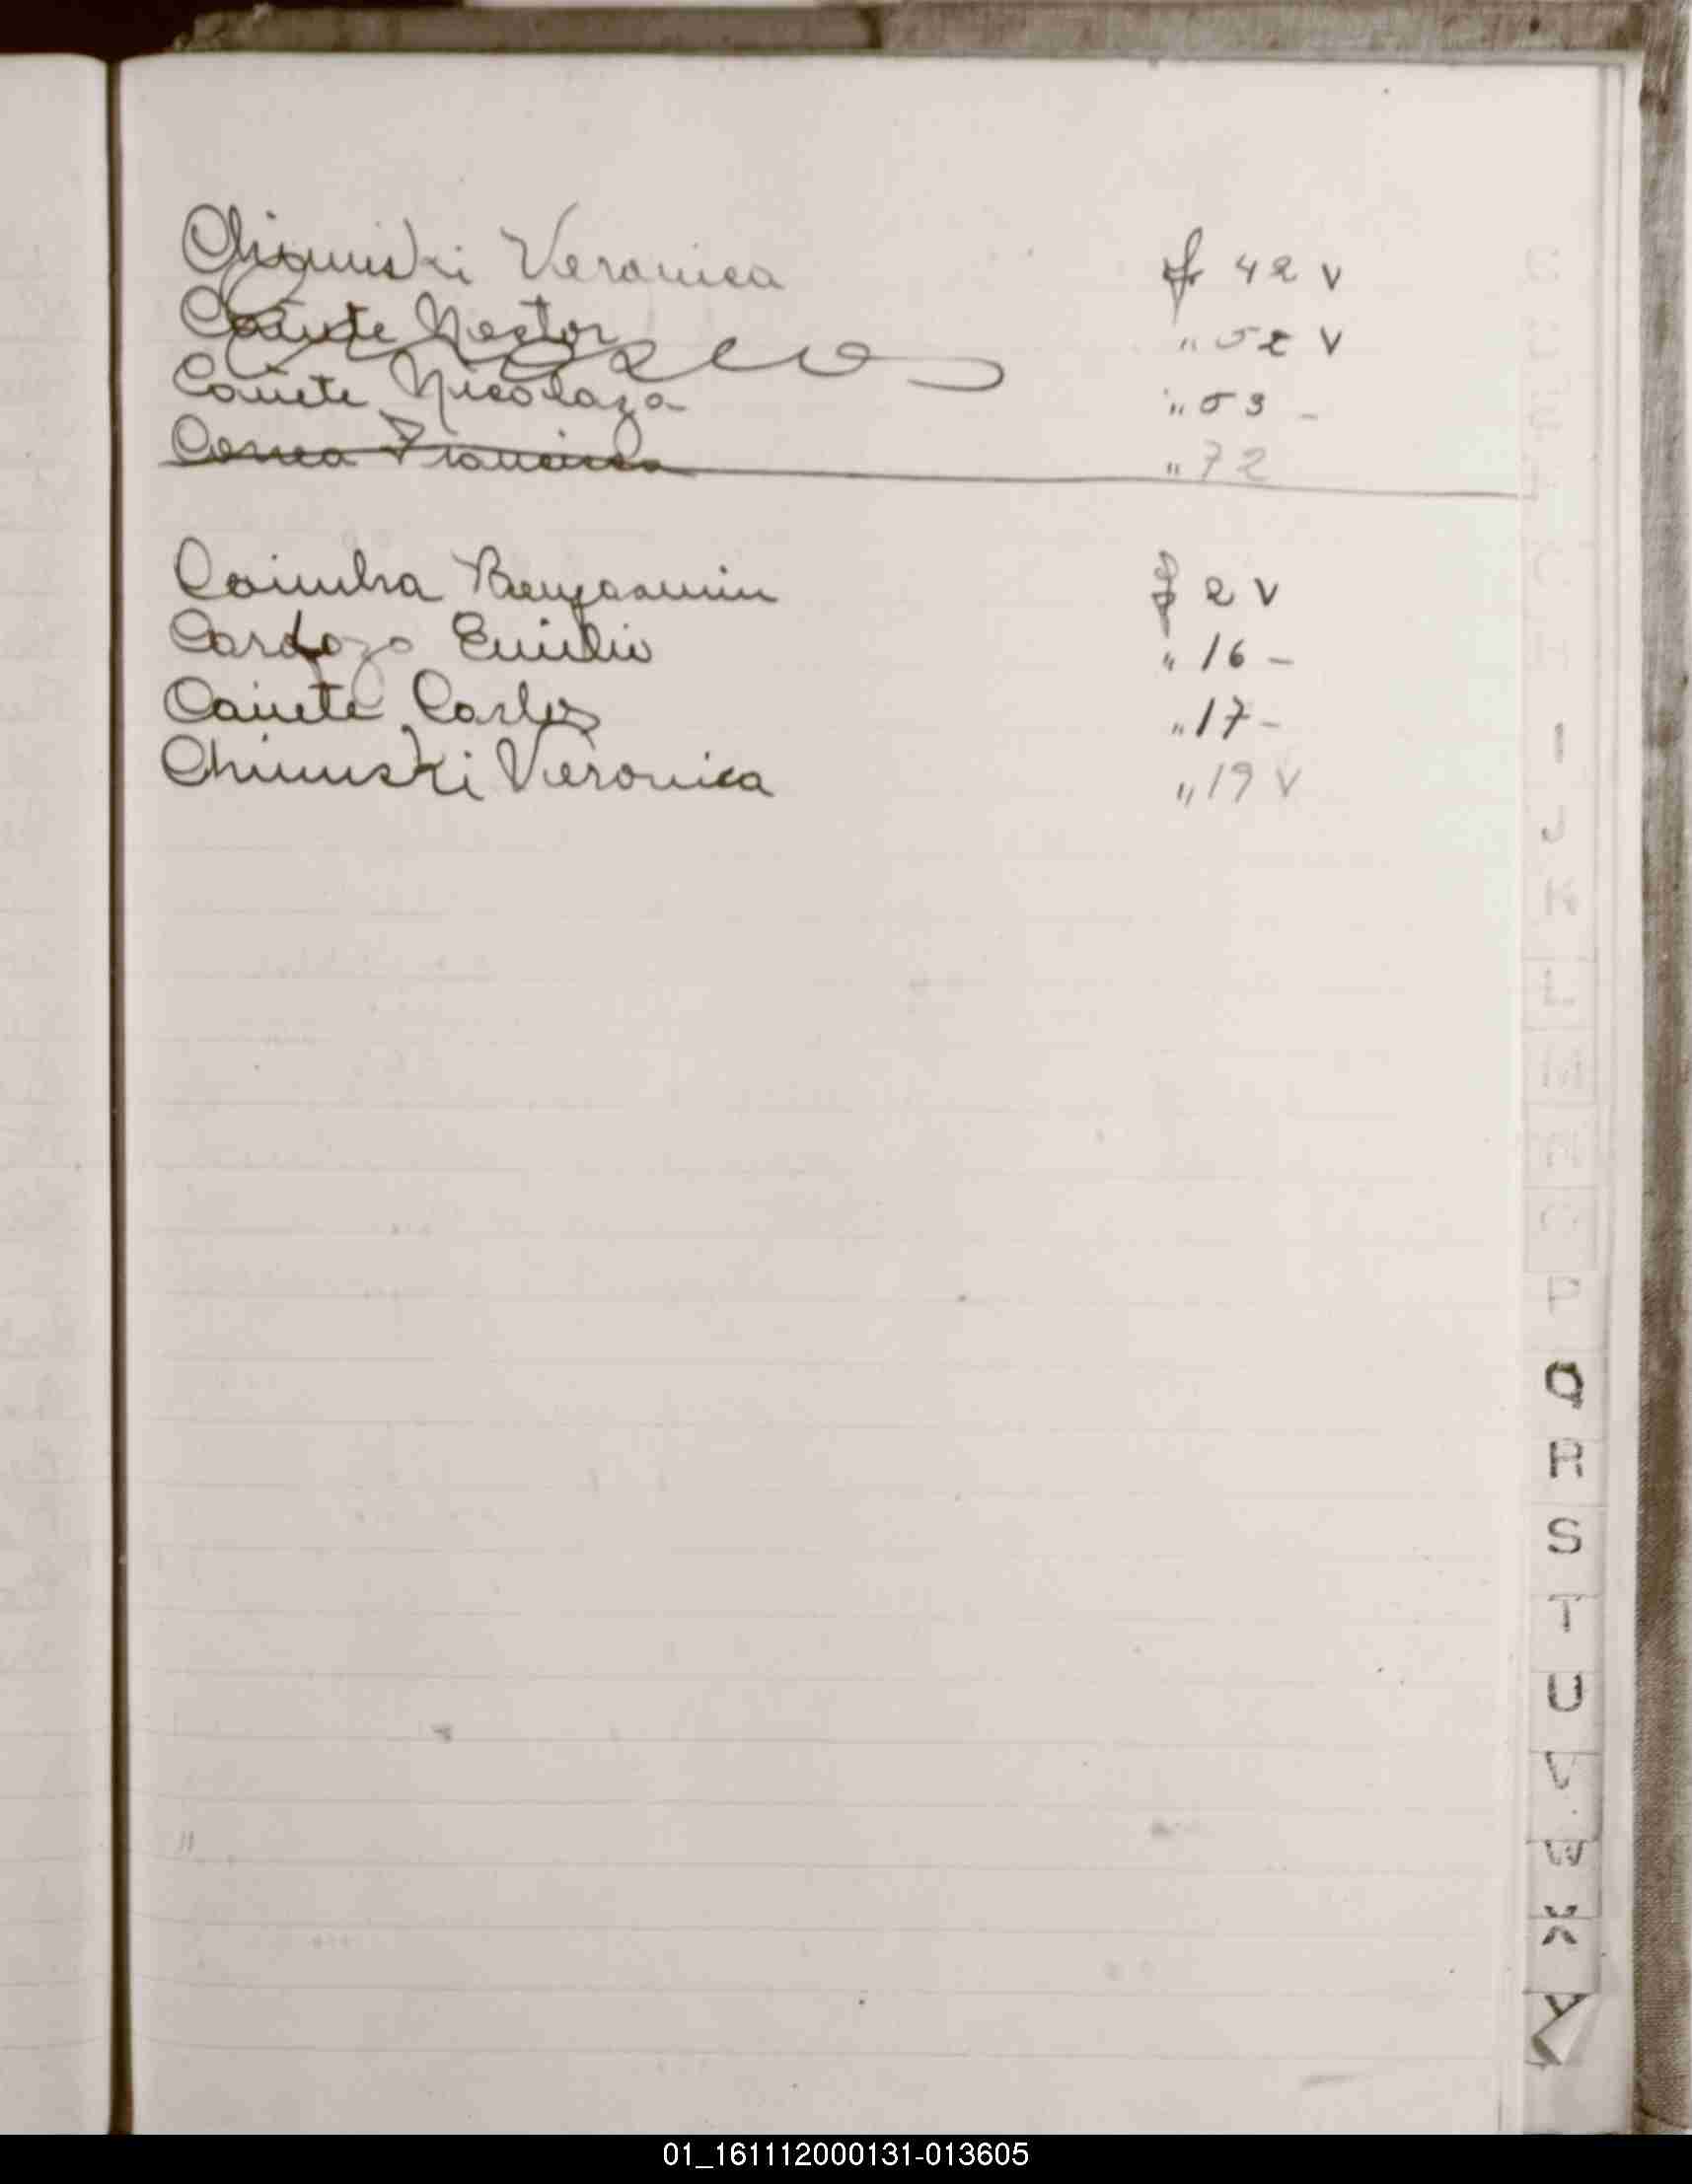 Chiminski Veronica f 42 v
Cañete Nestor " 52 v
Cañete Nicolaza " 53 -
Correa Francisca " 72
Coimbra Benjasmin f 2 v
Cardozo Emilio " 16 -
Cañete Carlos " 17 -
Chiminski Veronica " 19 v
I
J
K
L
P
Q
R
S
T
U
V
W
X
Y
01_161112000131-013605